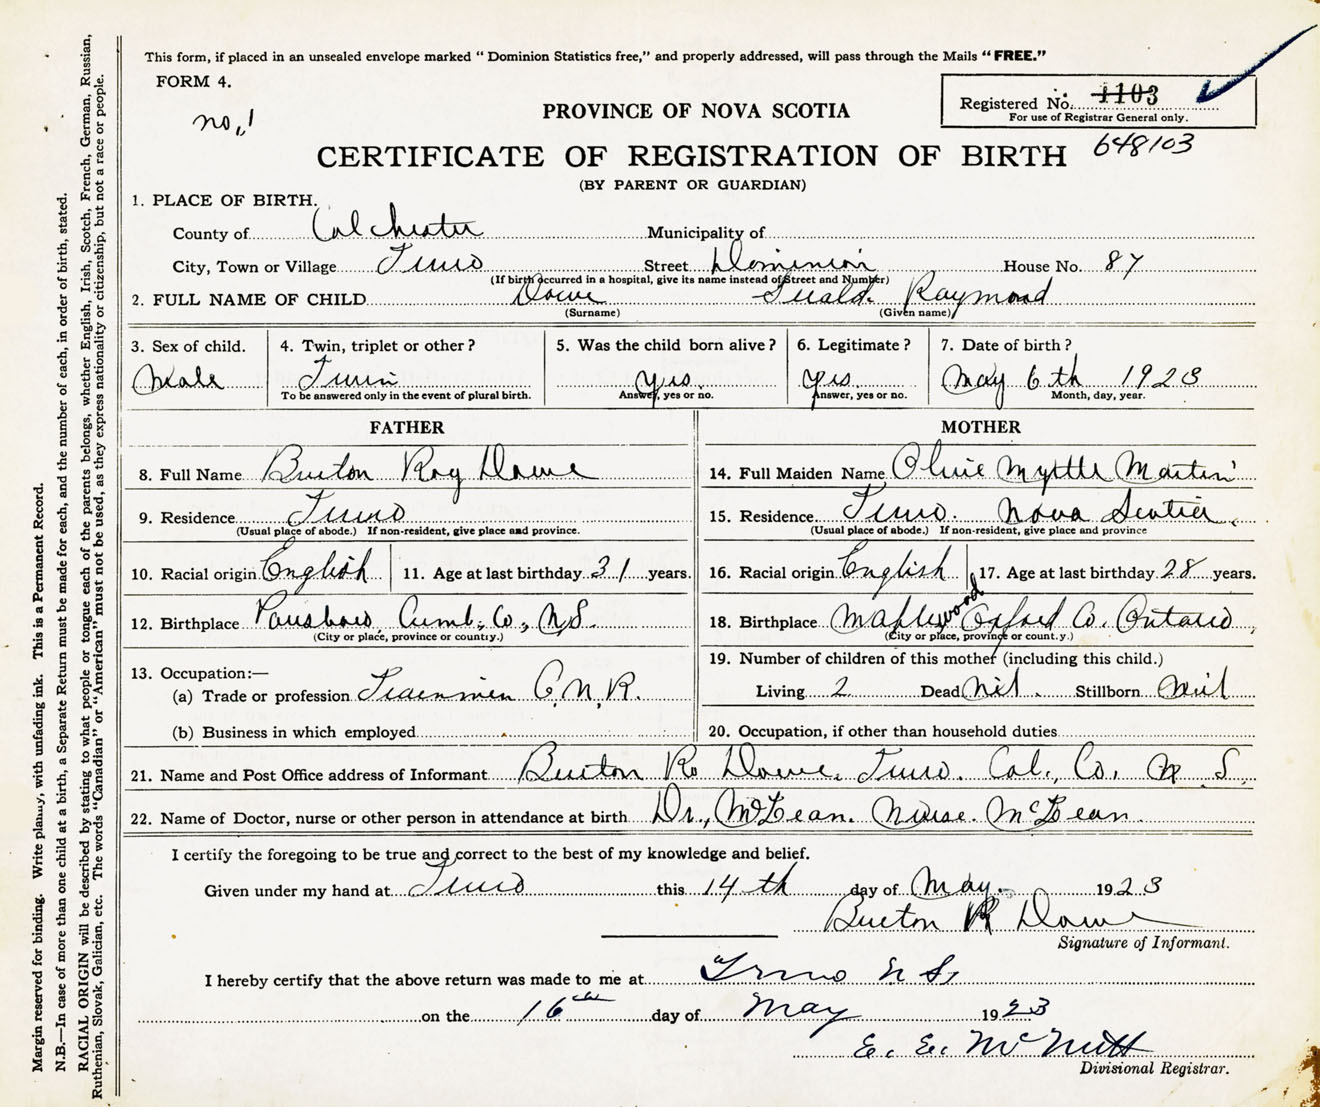 This form, if placed in an unsealed envelope marked "Dominion Statistics free," and properly addressed, will pass through the Mails "FREE."
FORM 4.
no,, 1
PROVINCE OF NOVA SCOTIA
Registered No. 1103
For use of Registrar General only.
648103
CERTIFICATE OF REGISTRATION OF BIRTH
(BY PARENT OR GUARDIAN)
1. PLACE OF BIRTH.
County of Colchester Municipality of
City, Town or Village Truro Street Dominion House No. 87
(If birth occurred in a hospital, give its name instead of Street and Number)
2. FULL NAME OF CHILD Dowe Gerald. Raymond
(Surname) (Given name)
3. Sex of child. 4. Twin, triplet or other? 5. Was the child born alive? 6. Legitimate? 7. Date of birth?
Male Twin yes. yes. May 6th 1923
To be answered only in the event of plural birth. Answer, yes or no. Answer, yes or no. Month, day, year.
FATHER
8. Full Name Burton Roy Dowe
9. Residence Truro
(Usual place of abode.) If non-resident, give place and province.
10. Racial origin English 11. Age at last birthday 31 years.
12. Birthplace Parrsboro, Cumb, Co, N.S.
(City or place, province or county.)
13. Occupation:—
(a) Trade or profession Trainmen C.N.R.
(b) Business in which employed
MOTHER
14. Full Maiden Name Olive Myrtle Martin
15. Residence Truro. Nova Scotia.
(Usual place of abode.) If non-resident, give place and province
16. Racial origin English 17. Age at last birthday 28 years.
18. Birthplace Maplewood Oxford Co. Ontario,
(City or place, province or county.)
19. Number of children of this mother (including this child.)
Living 2 Dead Nil. Stillborn Nil
20. Occupation, if other than household duties
21. Name and Post Office address of Informant Burton Ro Dowe. Truro. Col., Co, N S.
22. Name of Doctor, nurse or other person in attendance at birth Dr., McLean. Nurse. McLean.
I certify the foregoing to be true and correct to the best of my knowledge and belief.
Given under my hand at Truro this 14th day of May. 1923
Burton R Dowe
Signature of Informant.
I hereby certify that the above return was made to me at Truro N.S.
on the 16th day of May 1923
E. E. McNutt
Divisional Registrar.
Margin reserved for binding. Write plainly, with unfading ink. This is a Permanent Record.
N.B.—In case of more than one child at a birth, a Separate Return must be made for each, and the number of each, in order of birth, stated.
RACIAL ORIGIN will be described by stating to what people or tongue each of the parents belongs, whether English, Irish, Scotch, French, German, Russian,
Ruthenian, Slovak, Galician, etc. The words "Canadian" or "American" must not be used, as they express nationality or citizenship, but not a race or people.